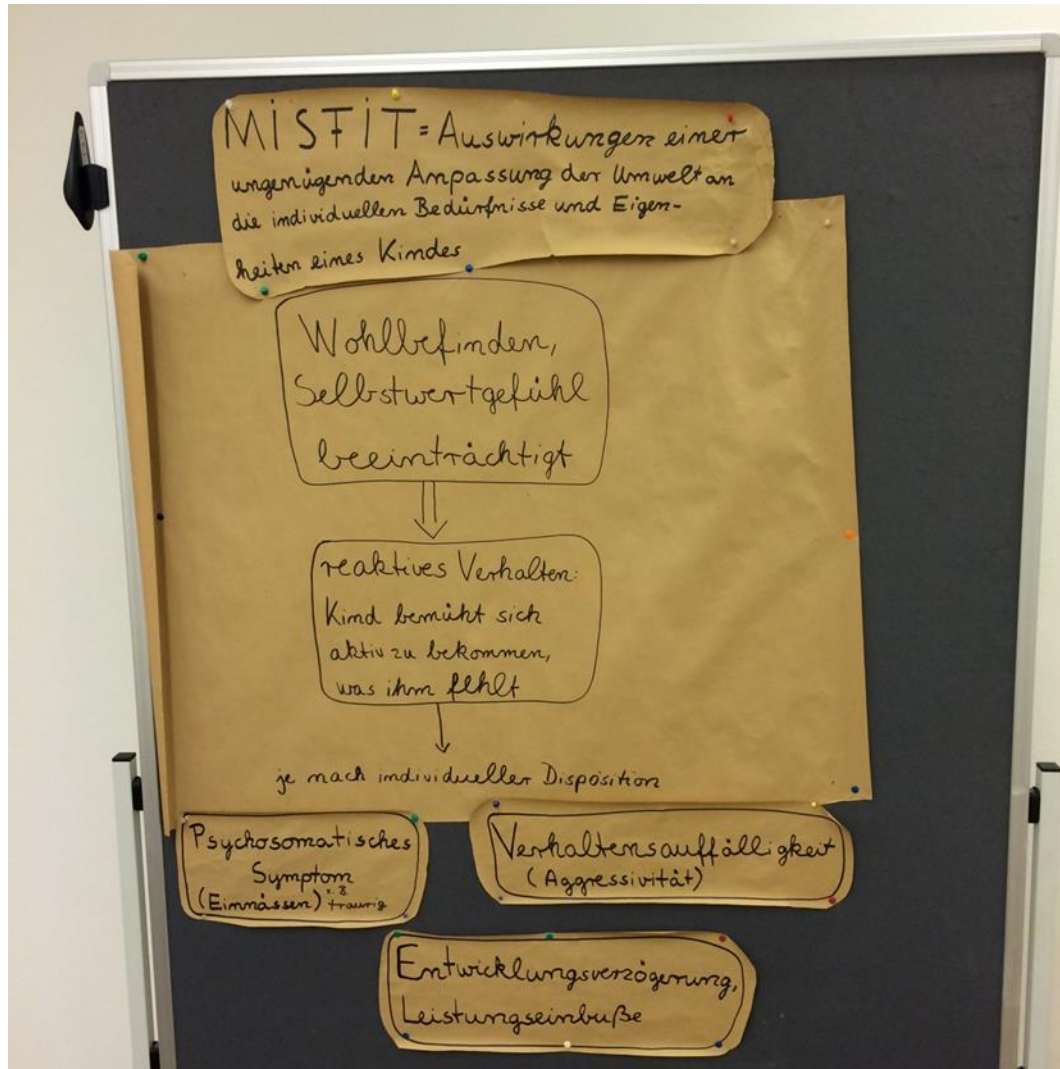 MISFIT = Auswirkungen einer
ungenügenden Anpassung der Umwelt an
die individuellen Bedürfnisse und Eigen-
heiten eines Kindes
Wohlbefinden,
Selbstwertgefühl
beeinträchtigt
reaktives Verhalten:
Kind bemüht sich
aktiv zu bekommen,
was ihm fehlt
je nach individueller Disposition
Psychosomatisches
Symptom
(Einnässen) z.B. traurig
Verhaltensauffälligkeit
(Aggressivität)
Entwicklungsverzögerung,
Leistungseinbuße